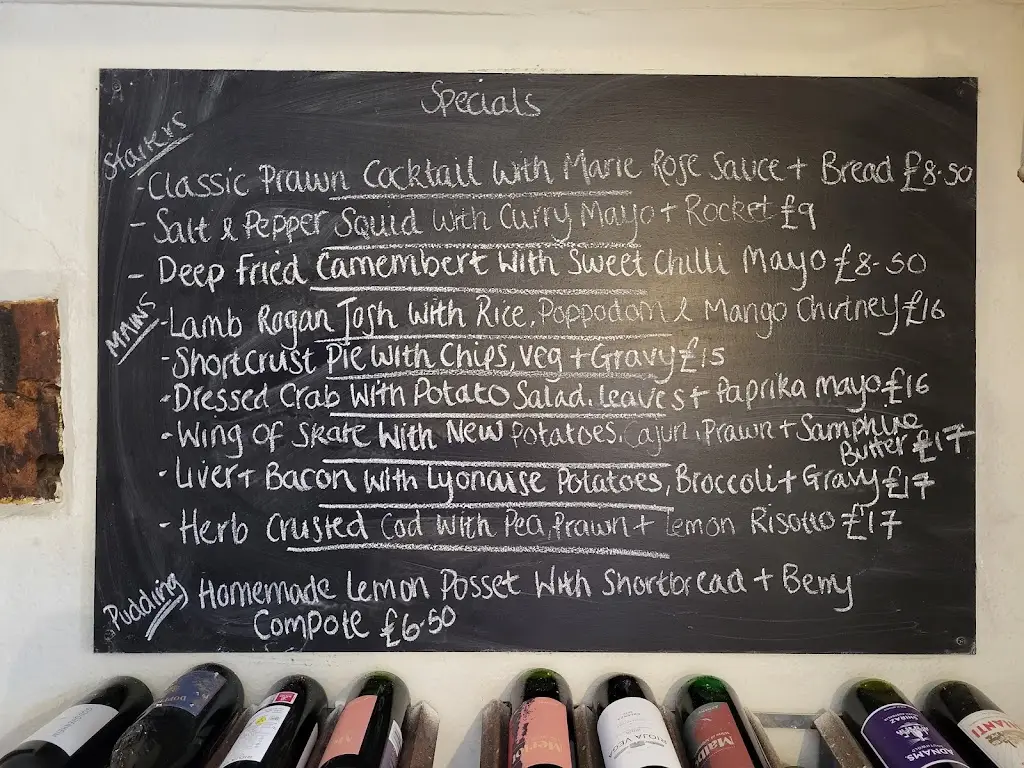 Specials
Starters
- Classic Prawn Cocktail With Marie Rose Sauce + Bread £8.50
- Salt & Pepper Squid with Curry Mayo + Rocket £9
- Deep Fried Camembert With Sweet Chilli Mayo £8.50
MAINS
- Lamb Rogan Josh With Rice, Poppodom & Mango Chutney £16
- Shortcrust Pie With Chips, Veg + Gravy £15
- Dressed Crab With Potato Salad, leaves + Paprika mayo £16
- Wing Of Skate With New Potatoes, Cajun, Prawn + Samphire
Butter £17
- Liver + Bacon With Lyonaise Potatoes, Broccoli + Gravy £17
- Herb Crusted Cod With Pea, Prawn + lemon Risotto £17
Pudding
Homemade Lemon Posset With Shortbread + Berry
Compote £6.50
RIOJA VEGA
ADNAMS
SHIRAZ